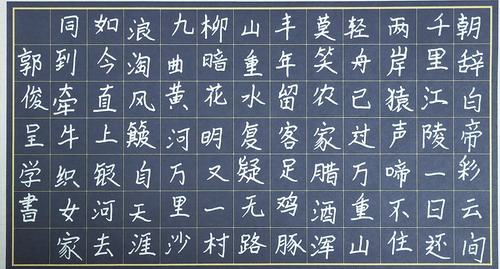 朝辞白帝彩云间
千里江陵一日还
两岸猿声啼不住
轻舟已过万重山
莫笑农家腊酒浑
丰年留客足鸡豚
山重水复疑无路
柳暗花明又一村
九曲黄河万里沙
浪淘风自天涯
如今直上银河去
同到牵牛织女家
郭俊呈学書